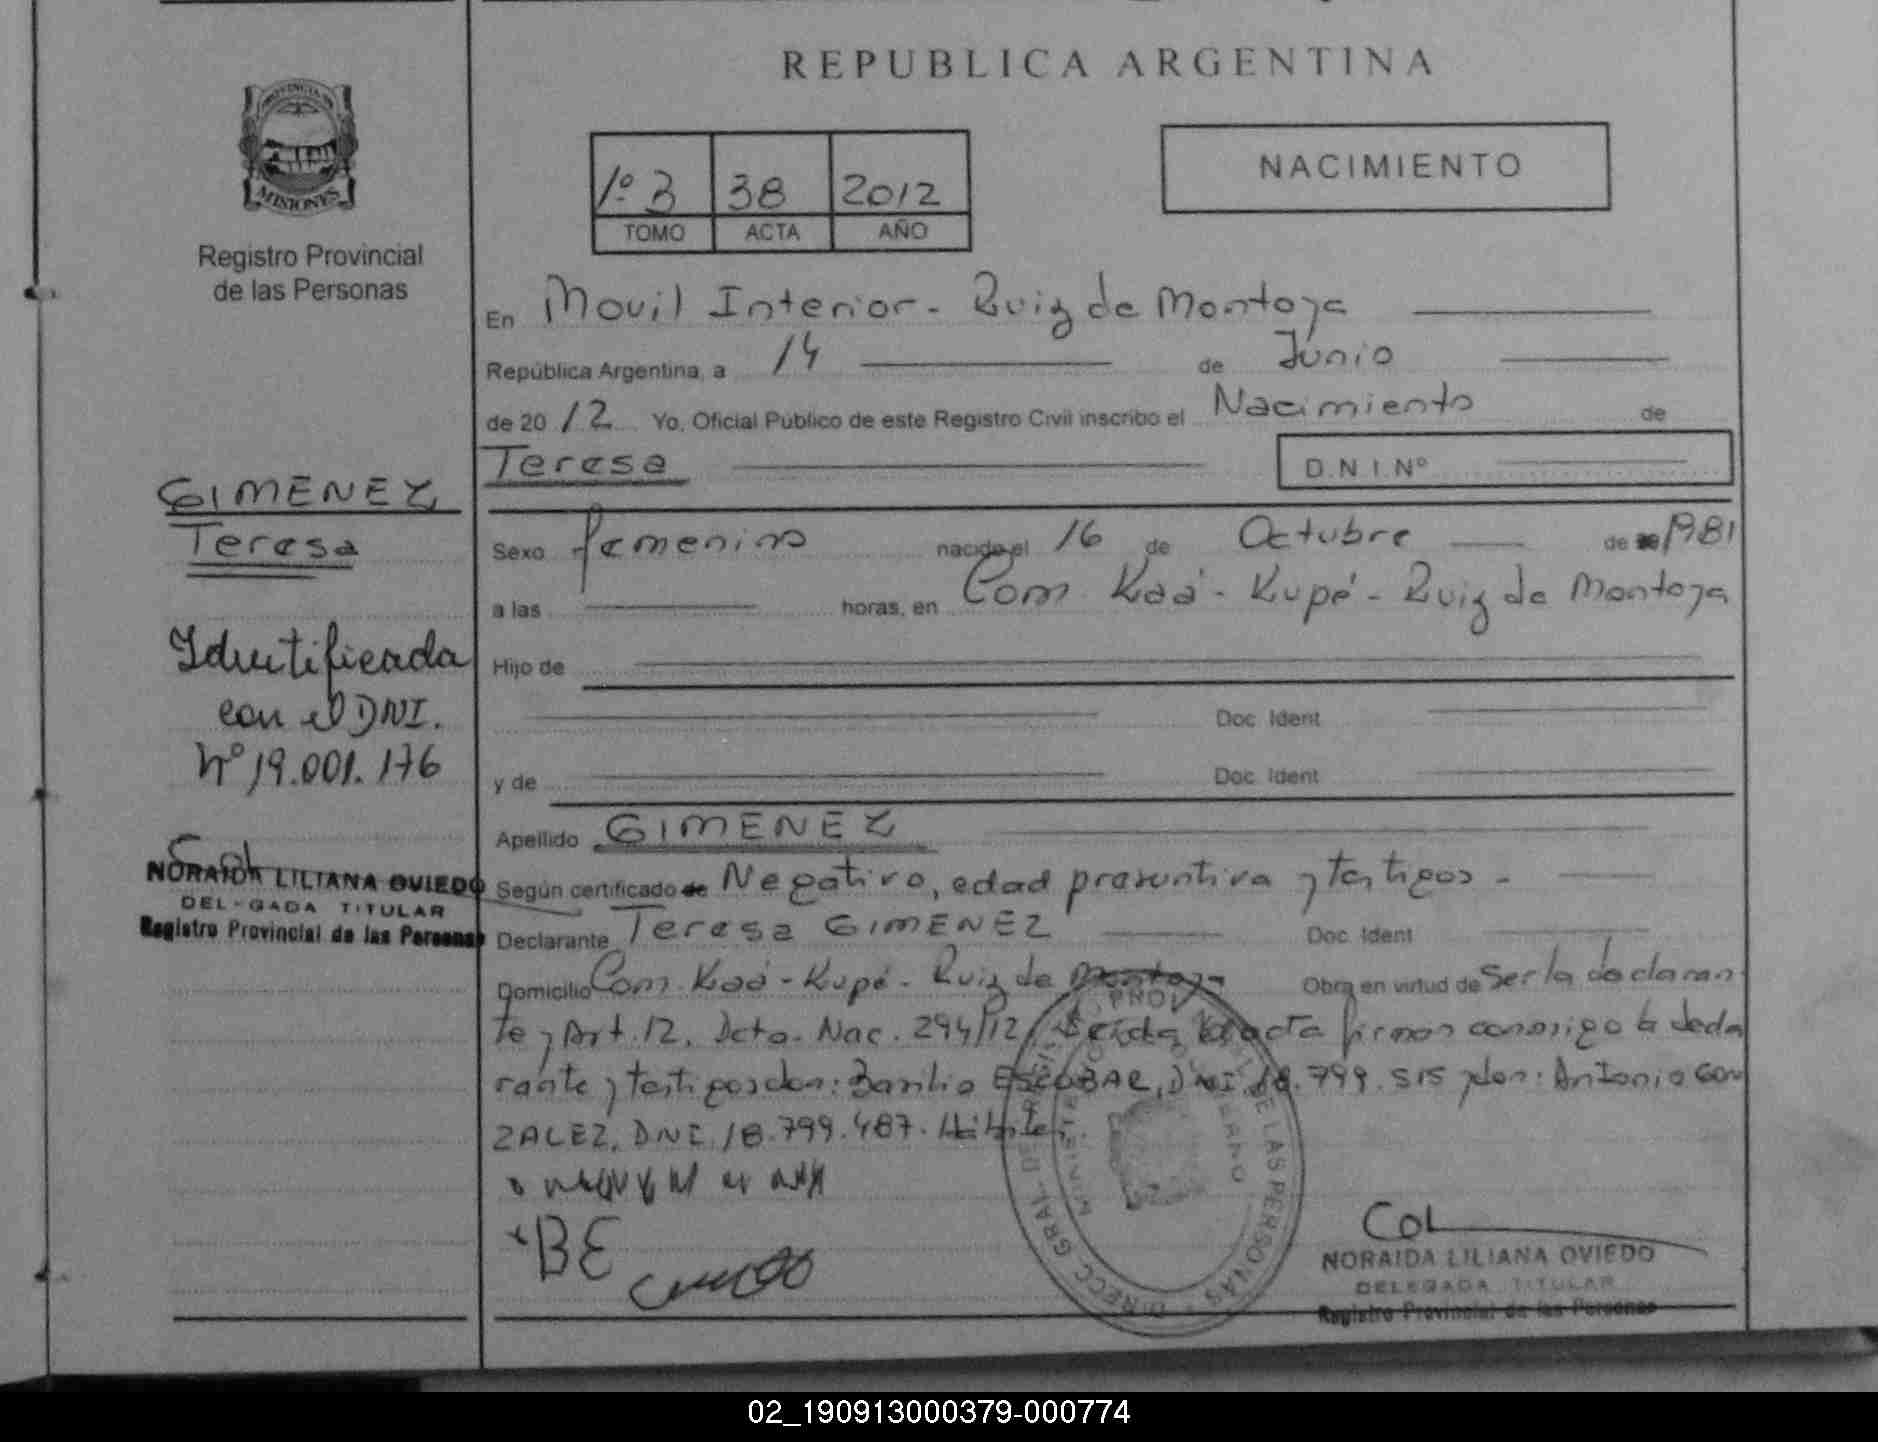 REPUBLICA ARGENTINA
PROVINCIA DE
MISIONES
Registro Provincial
de las Personas
1º 3 38 2012
TOMO ACTA AÑO
NACIMIENTO
En Movil Interior - Ruiz de Montoya
República Argentina, a 14 de Junio
de 2012 Yo, Oficial Público de este Registro Civil inscribo el Nacimiento de
Teresa D.N.I. Nº
GIMENEZ
Teresa
Sexo femenino nacido el 16 de Octubre de 1981
a las horas, en Com. Kaá - Kupé - Ruiz de Montoya
Identificada
con el DNI.
Nº 19.001.176
Hijo de
Doc. Ident
y de Doc. Ident
Apellido GIMENEZ
NORAIDA LILIANA OVIEDO
DELEGADA TITULAR
Registro Provincial de las Personas
Según certificado de Negativo, edad presuntiva y testigos -
Declarante Teresa GIMENEZ Doc. Ident
Domicilio Com. Kaá - Kupé - Ruiz de Montoya Obra en virtud de ser la declaran
te y Art. 12, Dcto. Nac. 294/12. Leída el acta firman conmigo la decla
rante y testigos don: Basilio ESCOBAR, DNI 18.799.515 y don: Antonio GON
ZALEZ, DNI 18.799.487.
BE
DIRECC. GRAL. DE LAS PERSONAS
NORAIDA LILIANA OVIEDO
DELEGADA TITULAR
Registro Provincial de las Personas
02_190913000379-000774